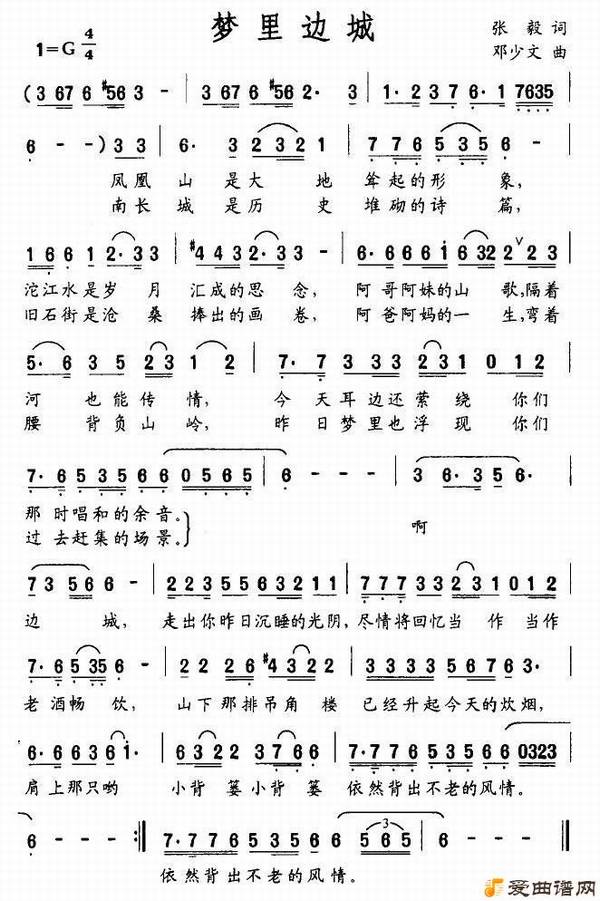 梦里边城
张毅 词
1=G 4/4
邓少文 曲
(3 67 6 #56 3 - | 3 67 6 #56 2· 3 | 1· 2 3 7 6· 1 7635 |
6 - -) 3 3 | 6· 3 2 32 1 | 7 7 6 5 3 5 6 - |
凤凰 山 是大 地 耸起的形 象,
南长 城 是历 史 堆砌的诗 篇,
1 6 6 1 2· 3 3 | #4 4 3 2· 3 3 | 6· 6 6 6 1 6 32 2 ∨ 2 2 3 |
沱江水是岁 月 汇成的思 念, 阿哥阿妹的山 歌,隔着
旧石街是沧 桑 捧出的画 卷, 阿爸阿妈的一 生,弯着
5· 6 3 5 2 3 1 2 | 7· 7 3 3 3 2 3 1 0 1 2 |
河 也能传情, 今天耳边还萦绕 你们
腰 背负山岭, 昨日梦里也浮现 你们
7· 6 5 3 5 6 6 0 5 6 5 | 6 - - - :| 3 6· 3 5 6· |
那时唱和的余音。
过去赶集的场景。
啊
7 3 5 6 6 - | 2 2 3 5 5 6 3 2 1 1 | 7 7 7 3 3 2 3 1 0 1 2 |
边 城, 走出你昨日沉睡的光阴, 尽情将回忆当 作 当作
7· 6 5 35 6 - | 2 2 2 6 #4 3 2 2 | 3 3 3 3 5 6 7 6 3· |
老酒畅 饮, 山下那排吊角 楼 已经升起今天的炊烟,
6· 6 6 3 6 1· | 6 3 2 2 3 7 6 6 | 7· 7 7 6 5 3 5 6 6 0323 |
肩上那只哟 小背 篓小背 篓 依然背出不老的风情。
6 - - - :| 7· 7 7 6 5 3 5 6 5 6 5 | 6 - - - |
依然背出不老的风情。
爱曲谱网